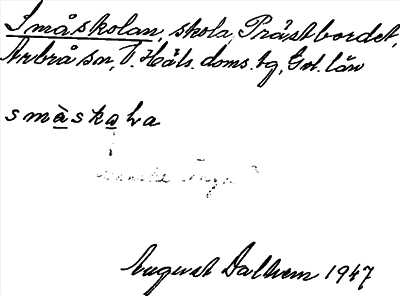 Småskolan, skola, Prästbordet,
Arbrå sn, V. Häls. doms. bg, Gvl. län
småskola
August Dalhem 1947